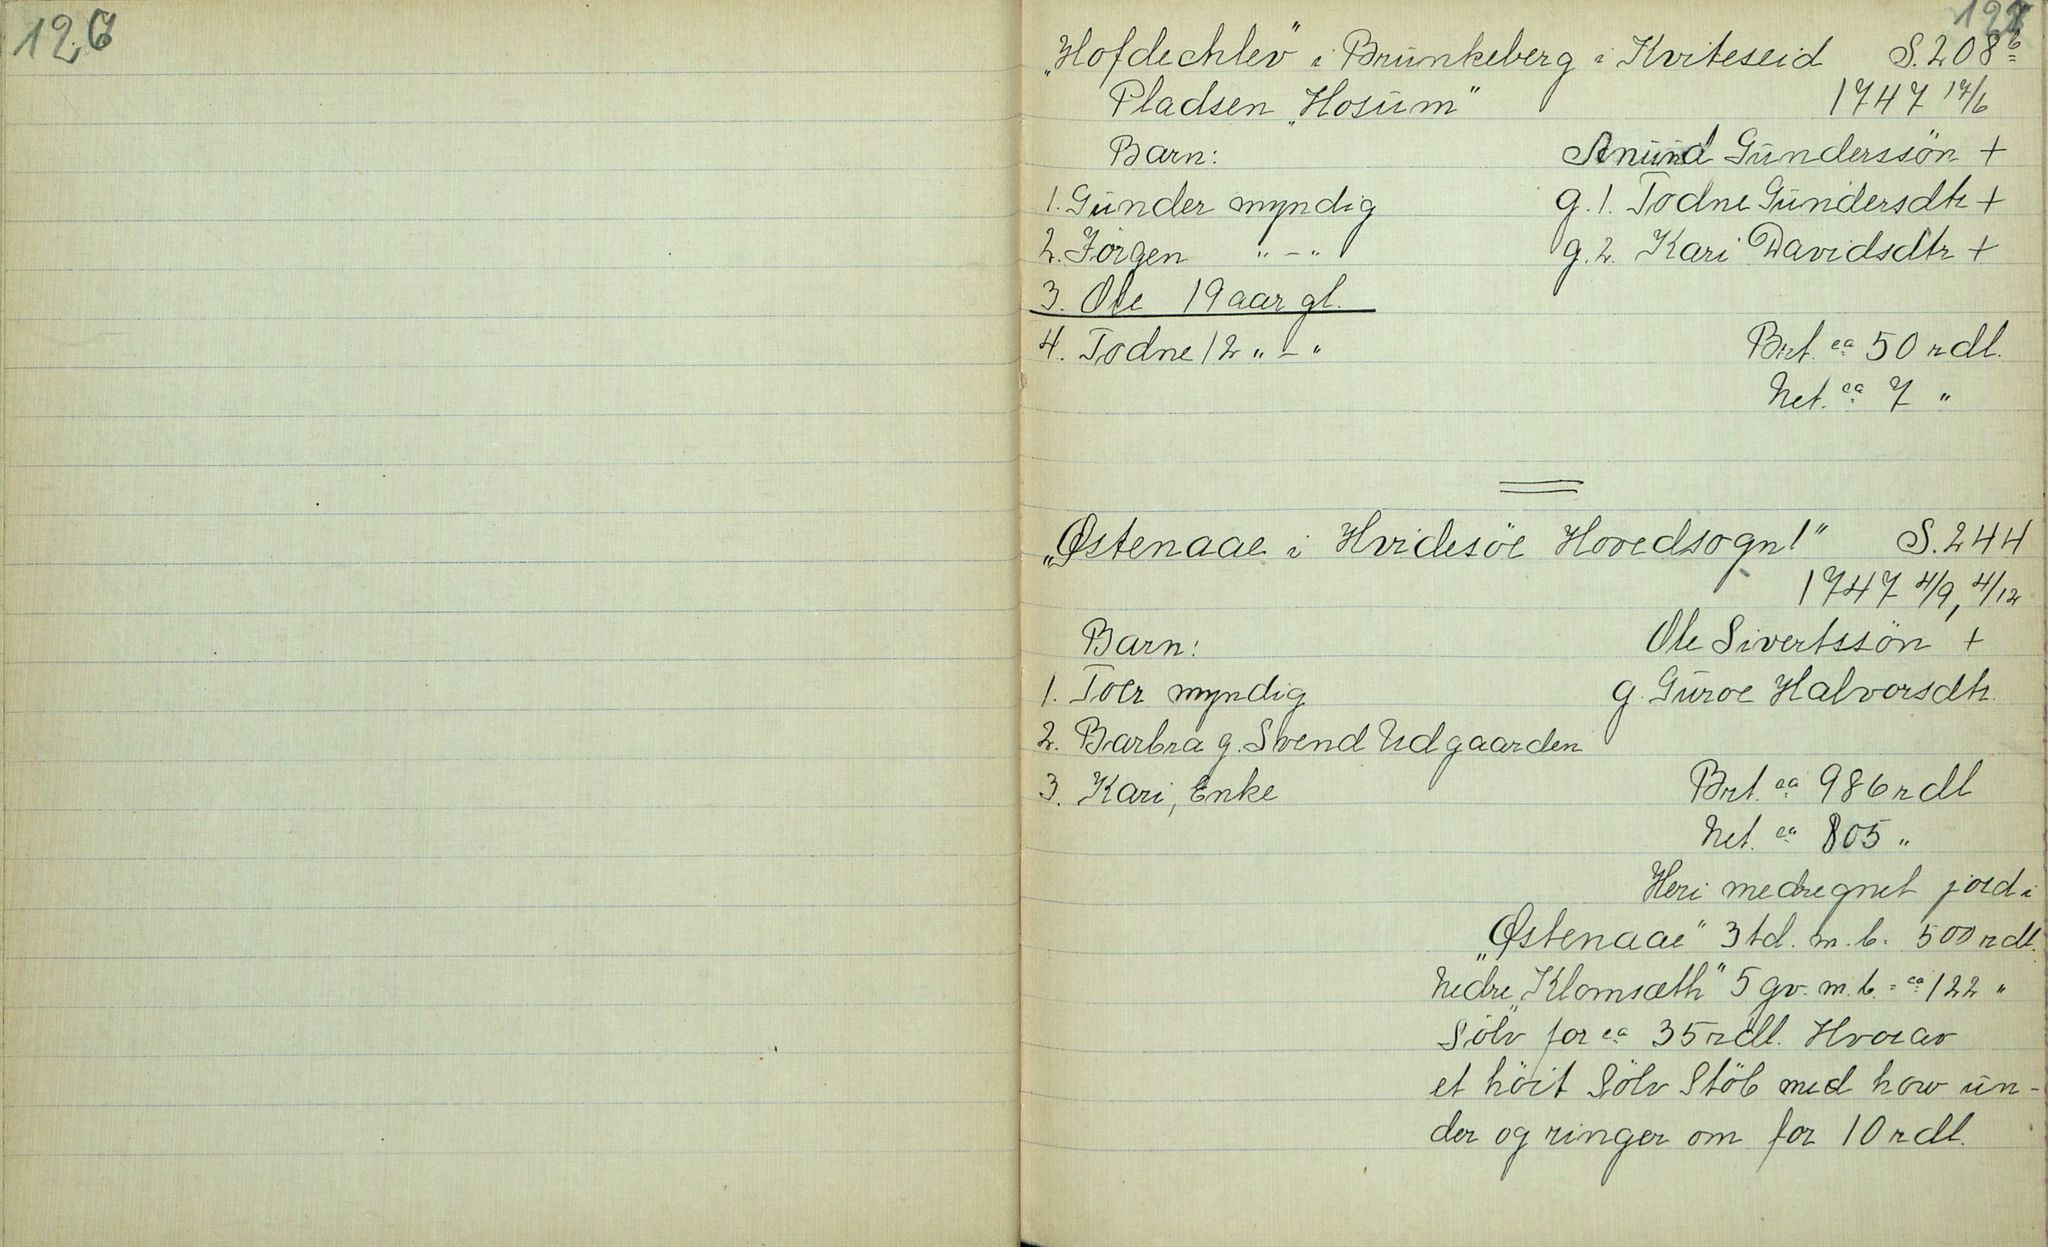 126
127
„Hofdechlev" i Brunkeberg i Kviteseid S. 208 b
Pladsen „Hosum" 1747 17/6
Barn: Anund Gunderssön +
1. Gunder myndig g. 1. Todne Gundersdtr +
2. Jörgen " - " g. 2. Kari Davidsdtr +
3. Ole 19 aar gl.
4. Todne 12 " - " Brt. ca 50 rdl.
Net. ca 7 "
„Østenaae i Hvidesöe Hovedsogn!" S. 244
1747 4/9, 4/12
Barn: Ole Sivertssön +
1. Toer myndig g. Guroe Halvorsdtr.
2. Barbra g. Svend Udgaarden
3. Kari, Enke Brt. ca 986 rdl
Net. ca 805 "
Heri medregnet jord i
„Østenaae" 3 td. m. b. 500 rdl.
Nedre „Klomsæth" 5 gv. m. b. = ca 122 "
Sölv for ca 35 rdl. Hvorav
et höit Sölv Stöb med how un-
der og ringer om for 10 rdl.